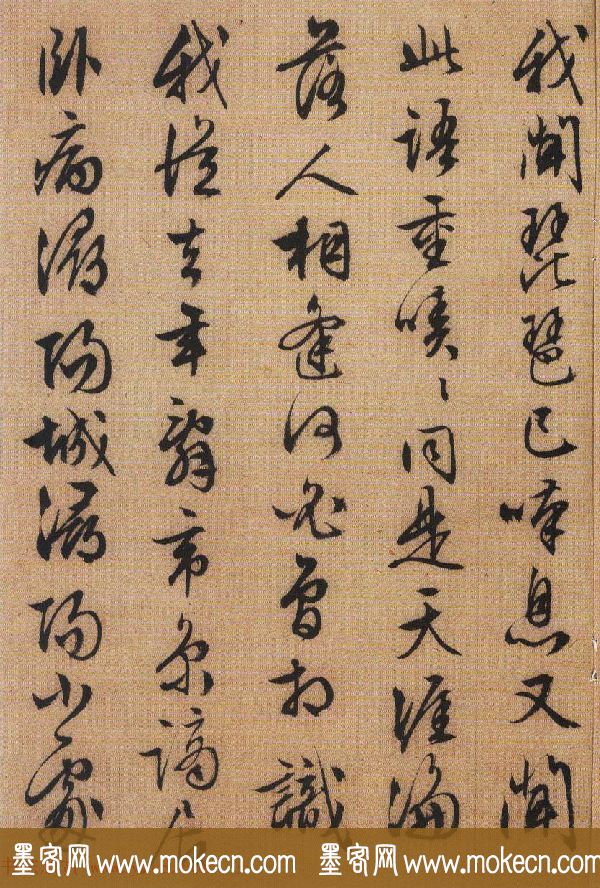 我聞琵琶已嘆息又聞
此語重唧〻同是天涯淪
落人相逢何必曾相識
我從去年辭帝京謫居
臥病潯陽城潯陽小處
墨客网 www.mokecn.com 墨客网 www.mokecn.com